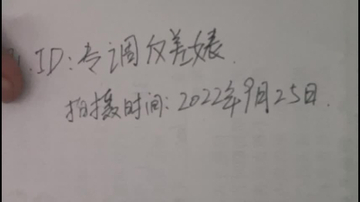 ID:专调仅差婊.
拍摄时间:2022年9月25日.